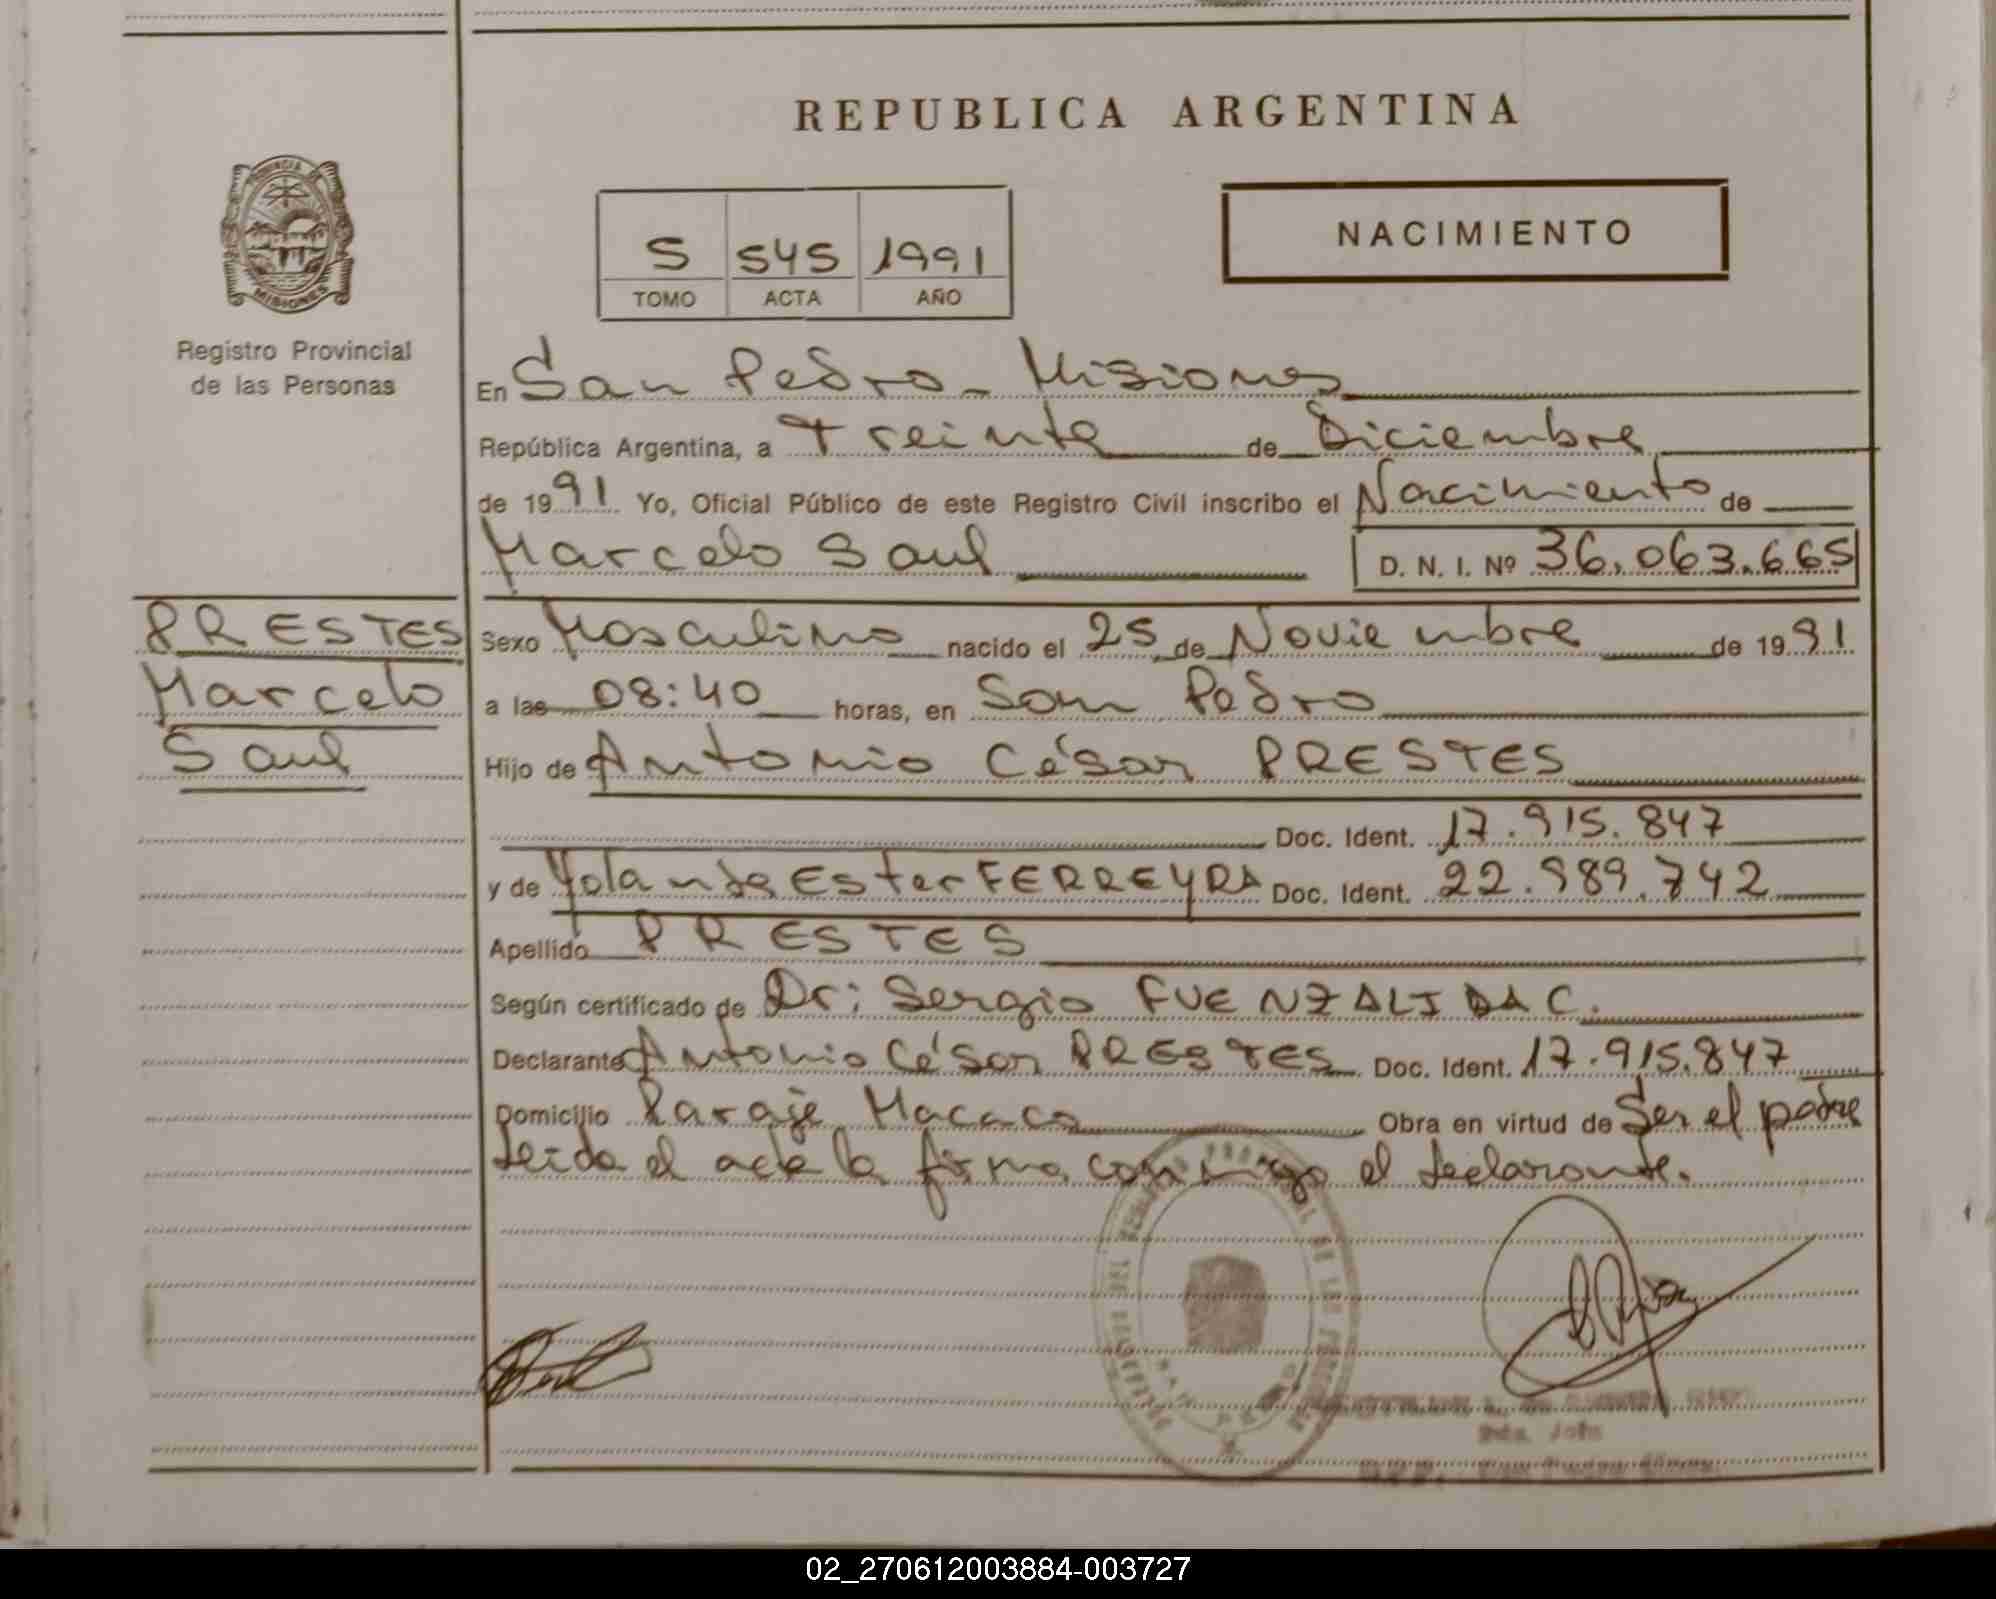 REPUBLICA ARGENTINA
PROVINCIA DE
MISIONES
Registro Provincial
de las Personas
5 545 1991
TOMO ACTA AÑO
NACIMIENTO
En San Pedro - Misiones
República Argentina, a treinta de Diciembre
de 1991 Yo, Oficial Público de este Registro Civil inscribo el Nacimiento de
Marcelo Saul D. N. I. Nº 36.063.665
PRESTES
Marcelo
Saul
Sexo Masculino nacido el 25 de Noviembre de 1991
a las 08:40 horas, en San Pedro
Hijo de Antonio César PRESTES
Doc. Ident. 17.915.847
y de Yolanda Ester FERREYRA Doc. Ident. 22.989.742
Apellido PRESTES
Según certificado de Dr: Sergio FUENZALIDA C.
Declarante Antonio César PRESTES Doc. Ident. 17.915.847
Domicilio Paraje Macaca Obra en virtud de Ser el padre
leida el acta la firma conmigo el declarante.
SAN PEDRO
02_270612003884-003727